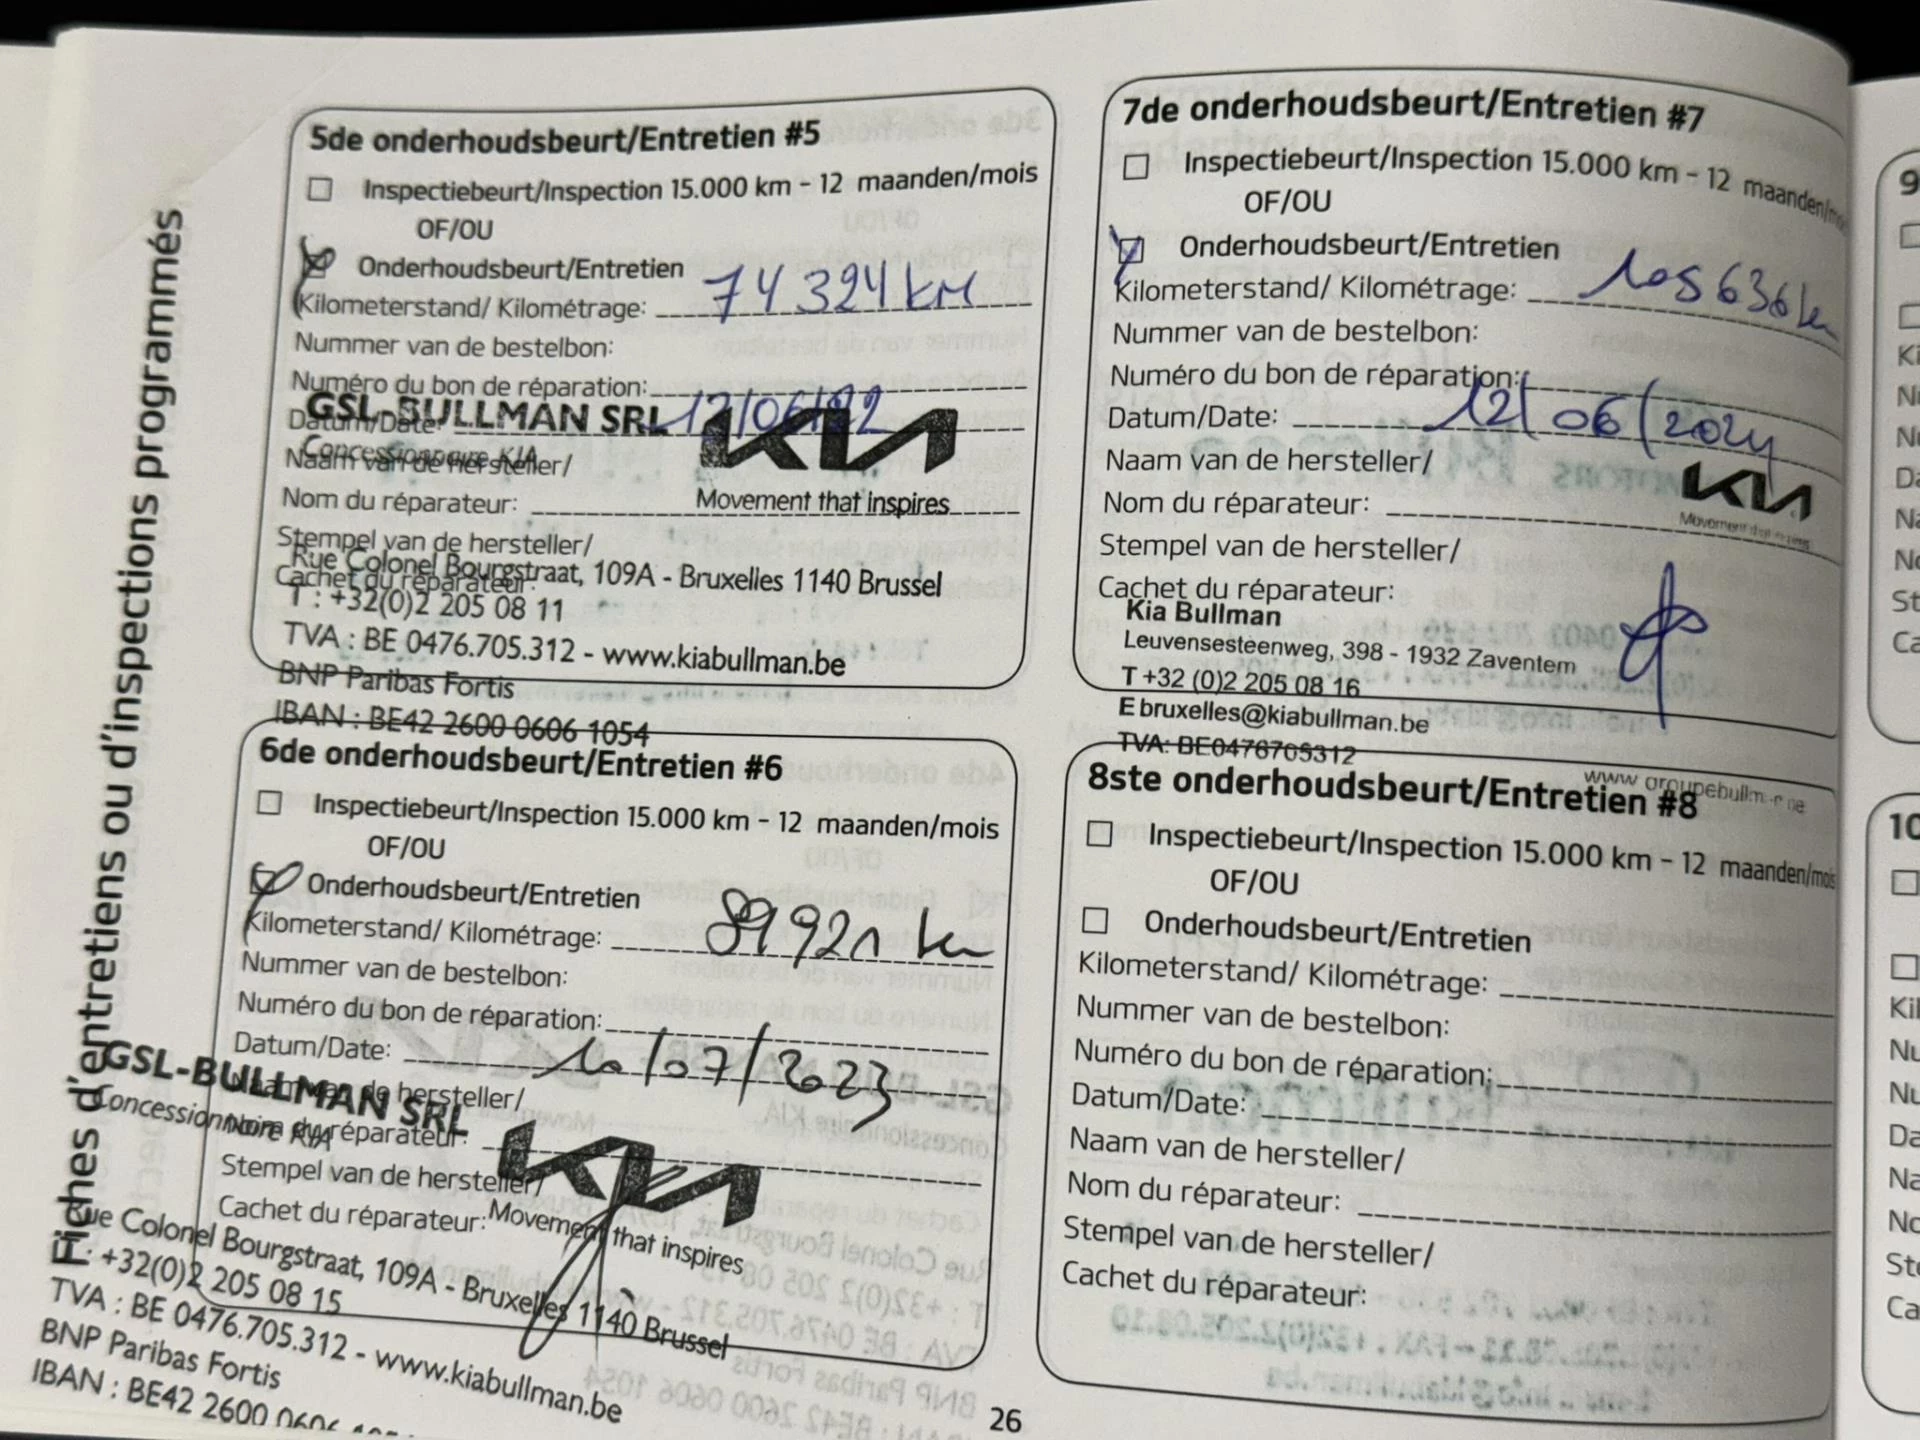 Fiches d'entretiens ou d'inspections programmés
5de onderhoudsbeurt/Entretien #5
Inspectiebeurt/Inspection 15.000 km - 12 maanden/mois
OF/OU
Onderhoudsbeurt/Entretien
Kilometerstand/ Kilométrage: 74324 km
Nummer van de bestelbon:
Numéro du bon de réparation:
Datum/Date: 17/06/22
GSL-BULLMAN SRL
Concessionnaire KIA
KIA
Movement that inspires
Naam van de hersteller/
Nom du réparateur:
Stempel van de hersteller/
Cachet du réparateur:
Rue Colonel Bourgstraat, 109A - Bruxelles 1140 Brussel
T : +32(0)2 205 08 11
TVA : BE 0476.705.312 - www.kiabullman.be
BNP Paribas Fortis
IBAN : BE42 2600 0606 1054
6de onderhoudsbeurt/Entretien #6
Inspectiebeurt/Inspection 15.000 km - 12 maanden/mois
OF/OU
Onderhoudsbeurt/Entretien
Kilometerstand/ Kilométrage: 89921 km
Nummer van de bestelbon:
Numéro du bon de réparation:
Datum/Date: 10/07/2023
Naam van de hersteller/
Nom du réparateur:
Stempel van de hersteller/
Cachet du réparateur:
GSL-BULLMAN SRL
Concessionnaire KIA
KIA
Movement that inspires
Rue Colonel Bourgstraat, 109A - Bruxelles 1140 Brussel
T : +32(0)2 205 08 15
TVA : BE 0476.705.312 - www.kiabullman.be
BNP Paribas Fortis
IBAN : BE42 2600 0606
7de onderhoudsbeurt/Entretien #7
Inspectiebeurt/Inspection 15.000 km - 12 maanden/
OF/OU
Onderhoudsbeurt/Entretien
Kilometerstand/ Kilométrage: 105636 km
Nummer van de bestelbon:
Numéro du bon de réparation:
Datum/Date: 12/06/2024
Naam van de hersteller/
Nom du réparateur:
KIA
Movement that inspires
Stempel van de hersteller/
Cachet du réparateur:
Kia Bullman
Leuvensesteenweg, 398 - 1932 Zaventem
T +32 (0)2 205 08 16
E bruxelles@kiabullman.be
TVA: BE0476705312
8ste onderhoudsbeurt/Entretien #8
Inspectiebeurt/Inspection 15.000 km - 12 maanden/mois
OF/OU
Onderhoudsbeurt/Entretien
Kilometerstand/ Kilométrage:
Nummer van de bestelbon:
Numéro du bon de réparation:
Datum/Date:
Naam van de hersteller/
Nom du réparateur:
Stempel van de hersteller/
Cachet du réparateur:
26